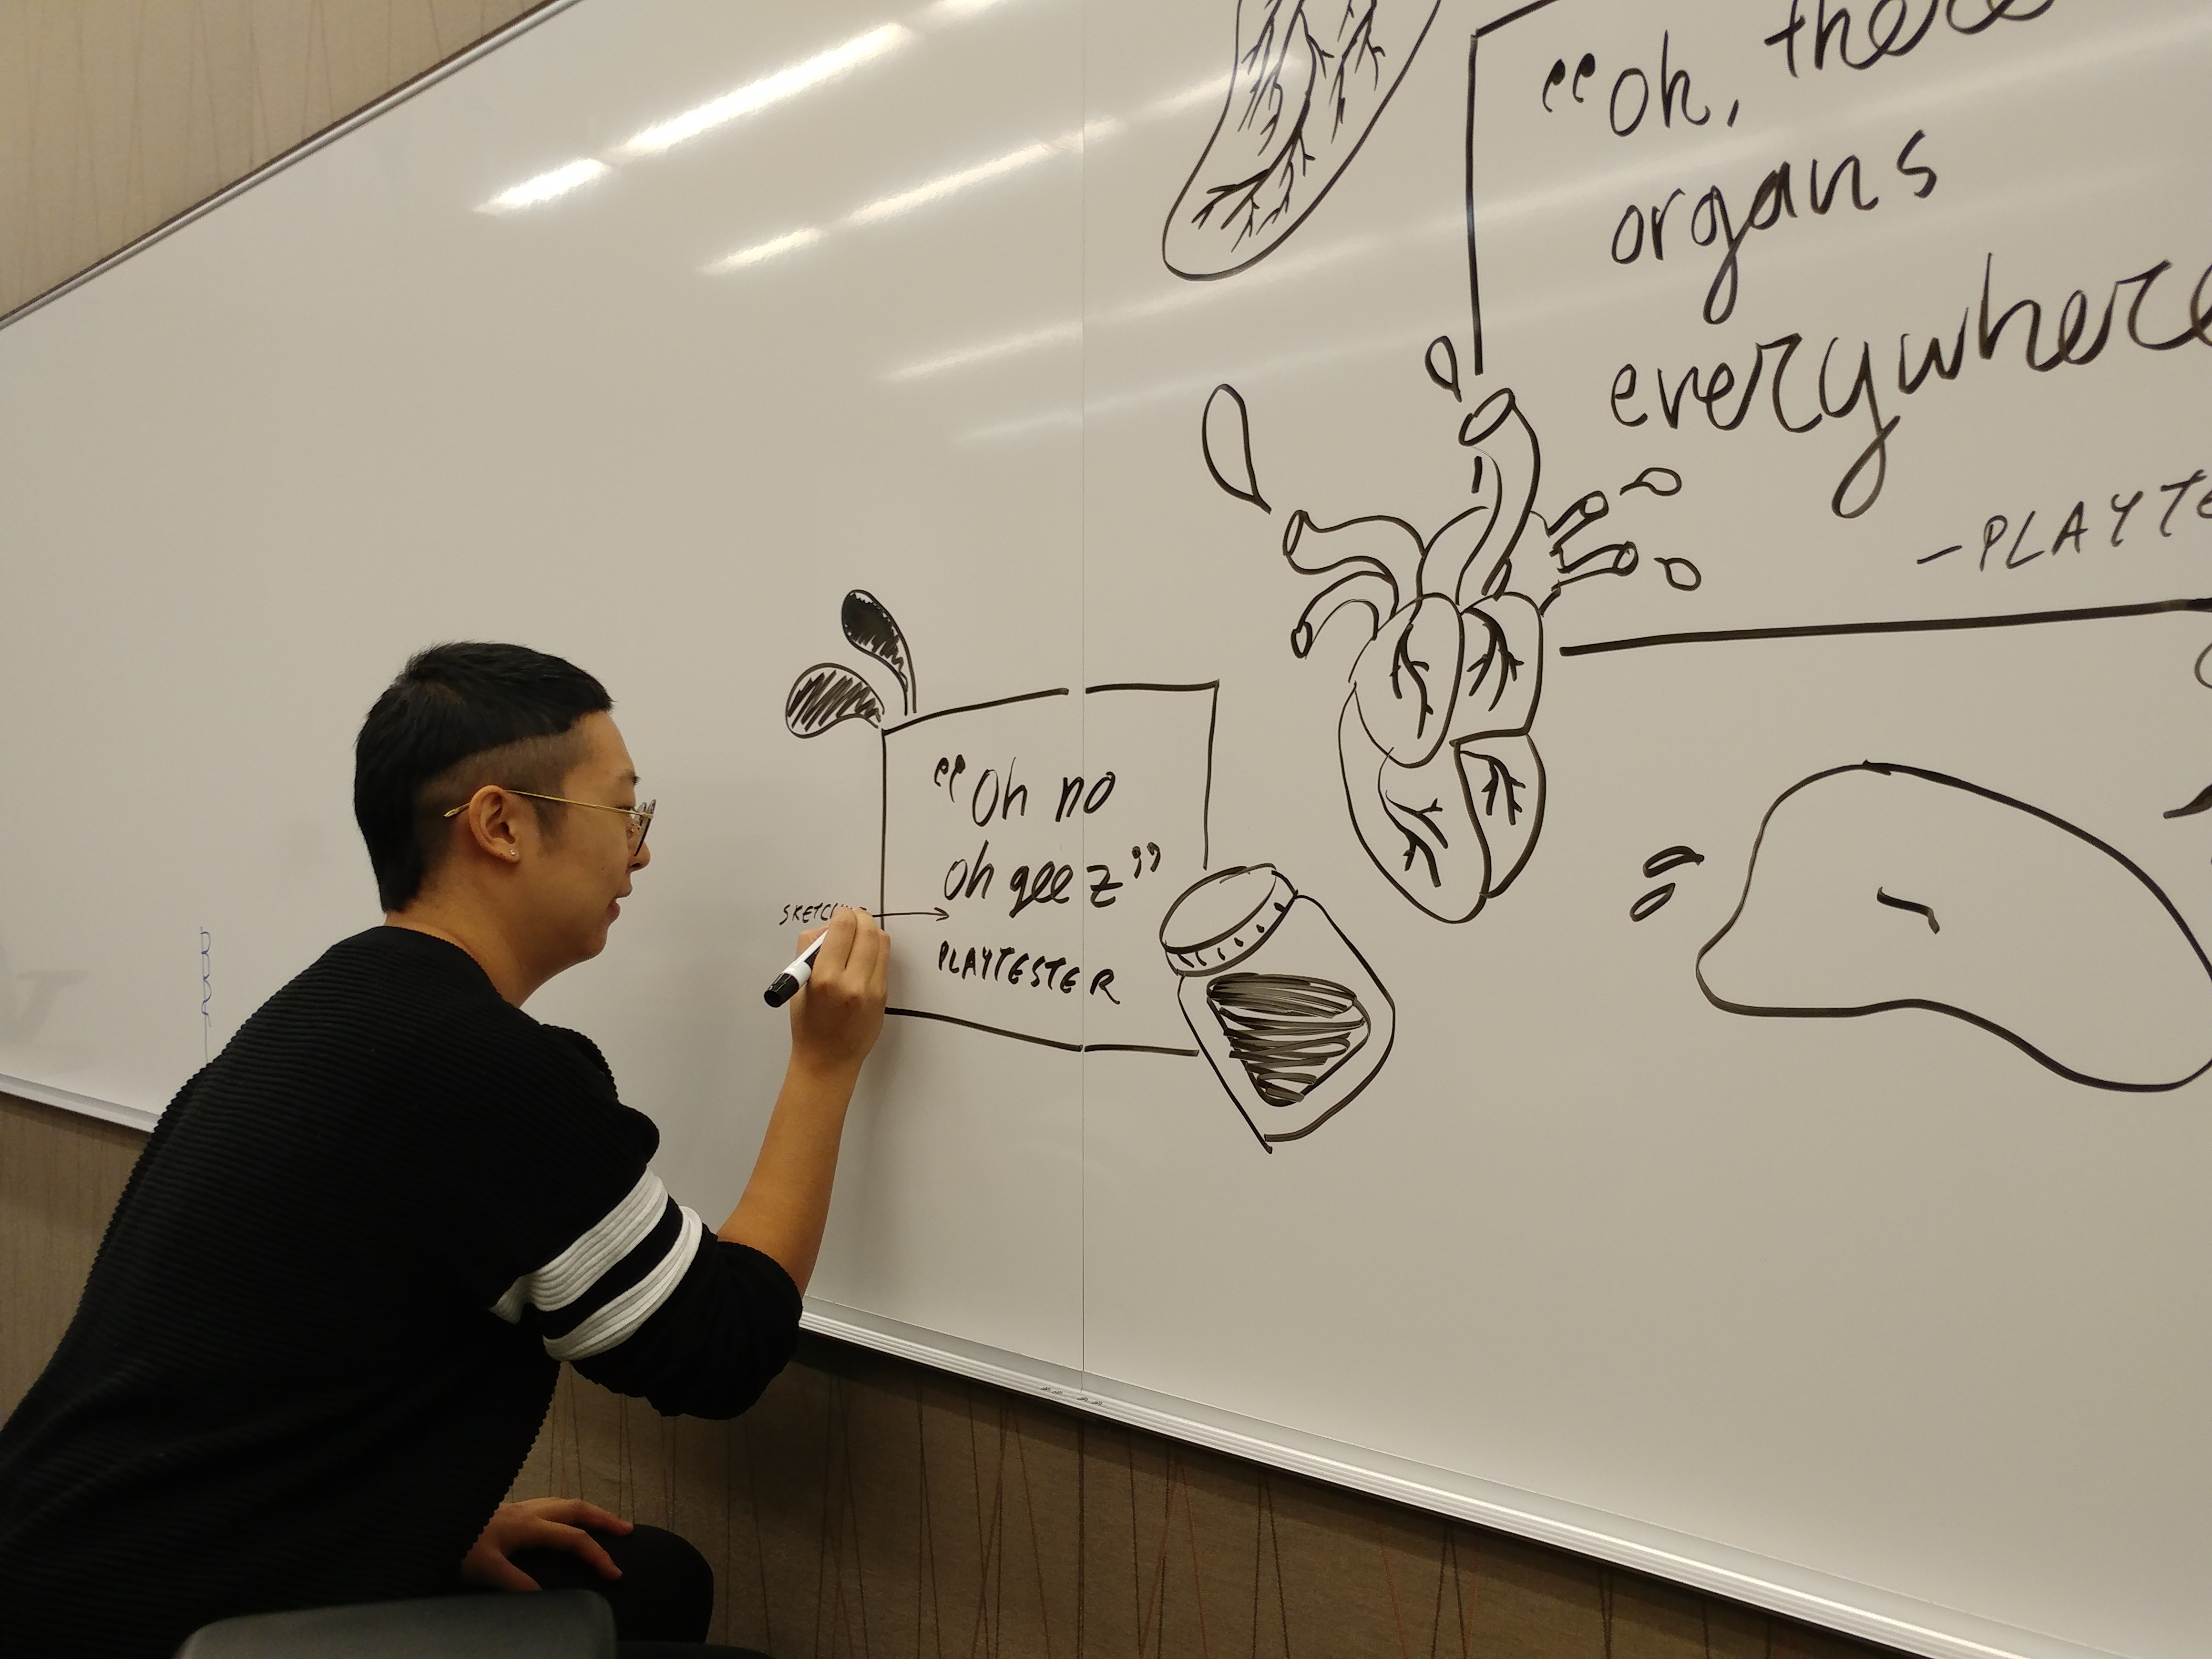 “oh, there
organs
everywhere
- PLAYTE
“Oh no
oh geez”
PLAYTESTER